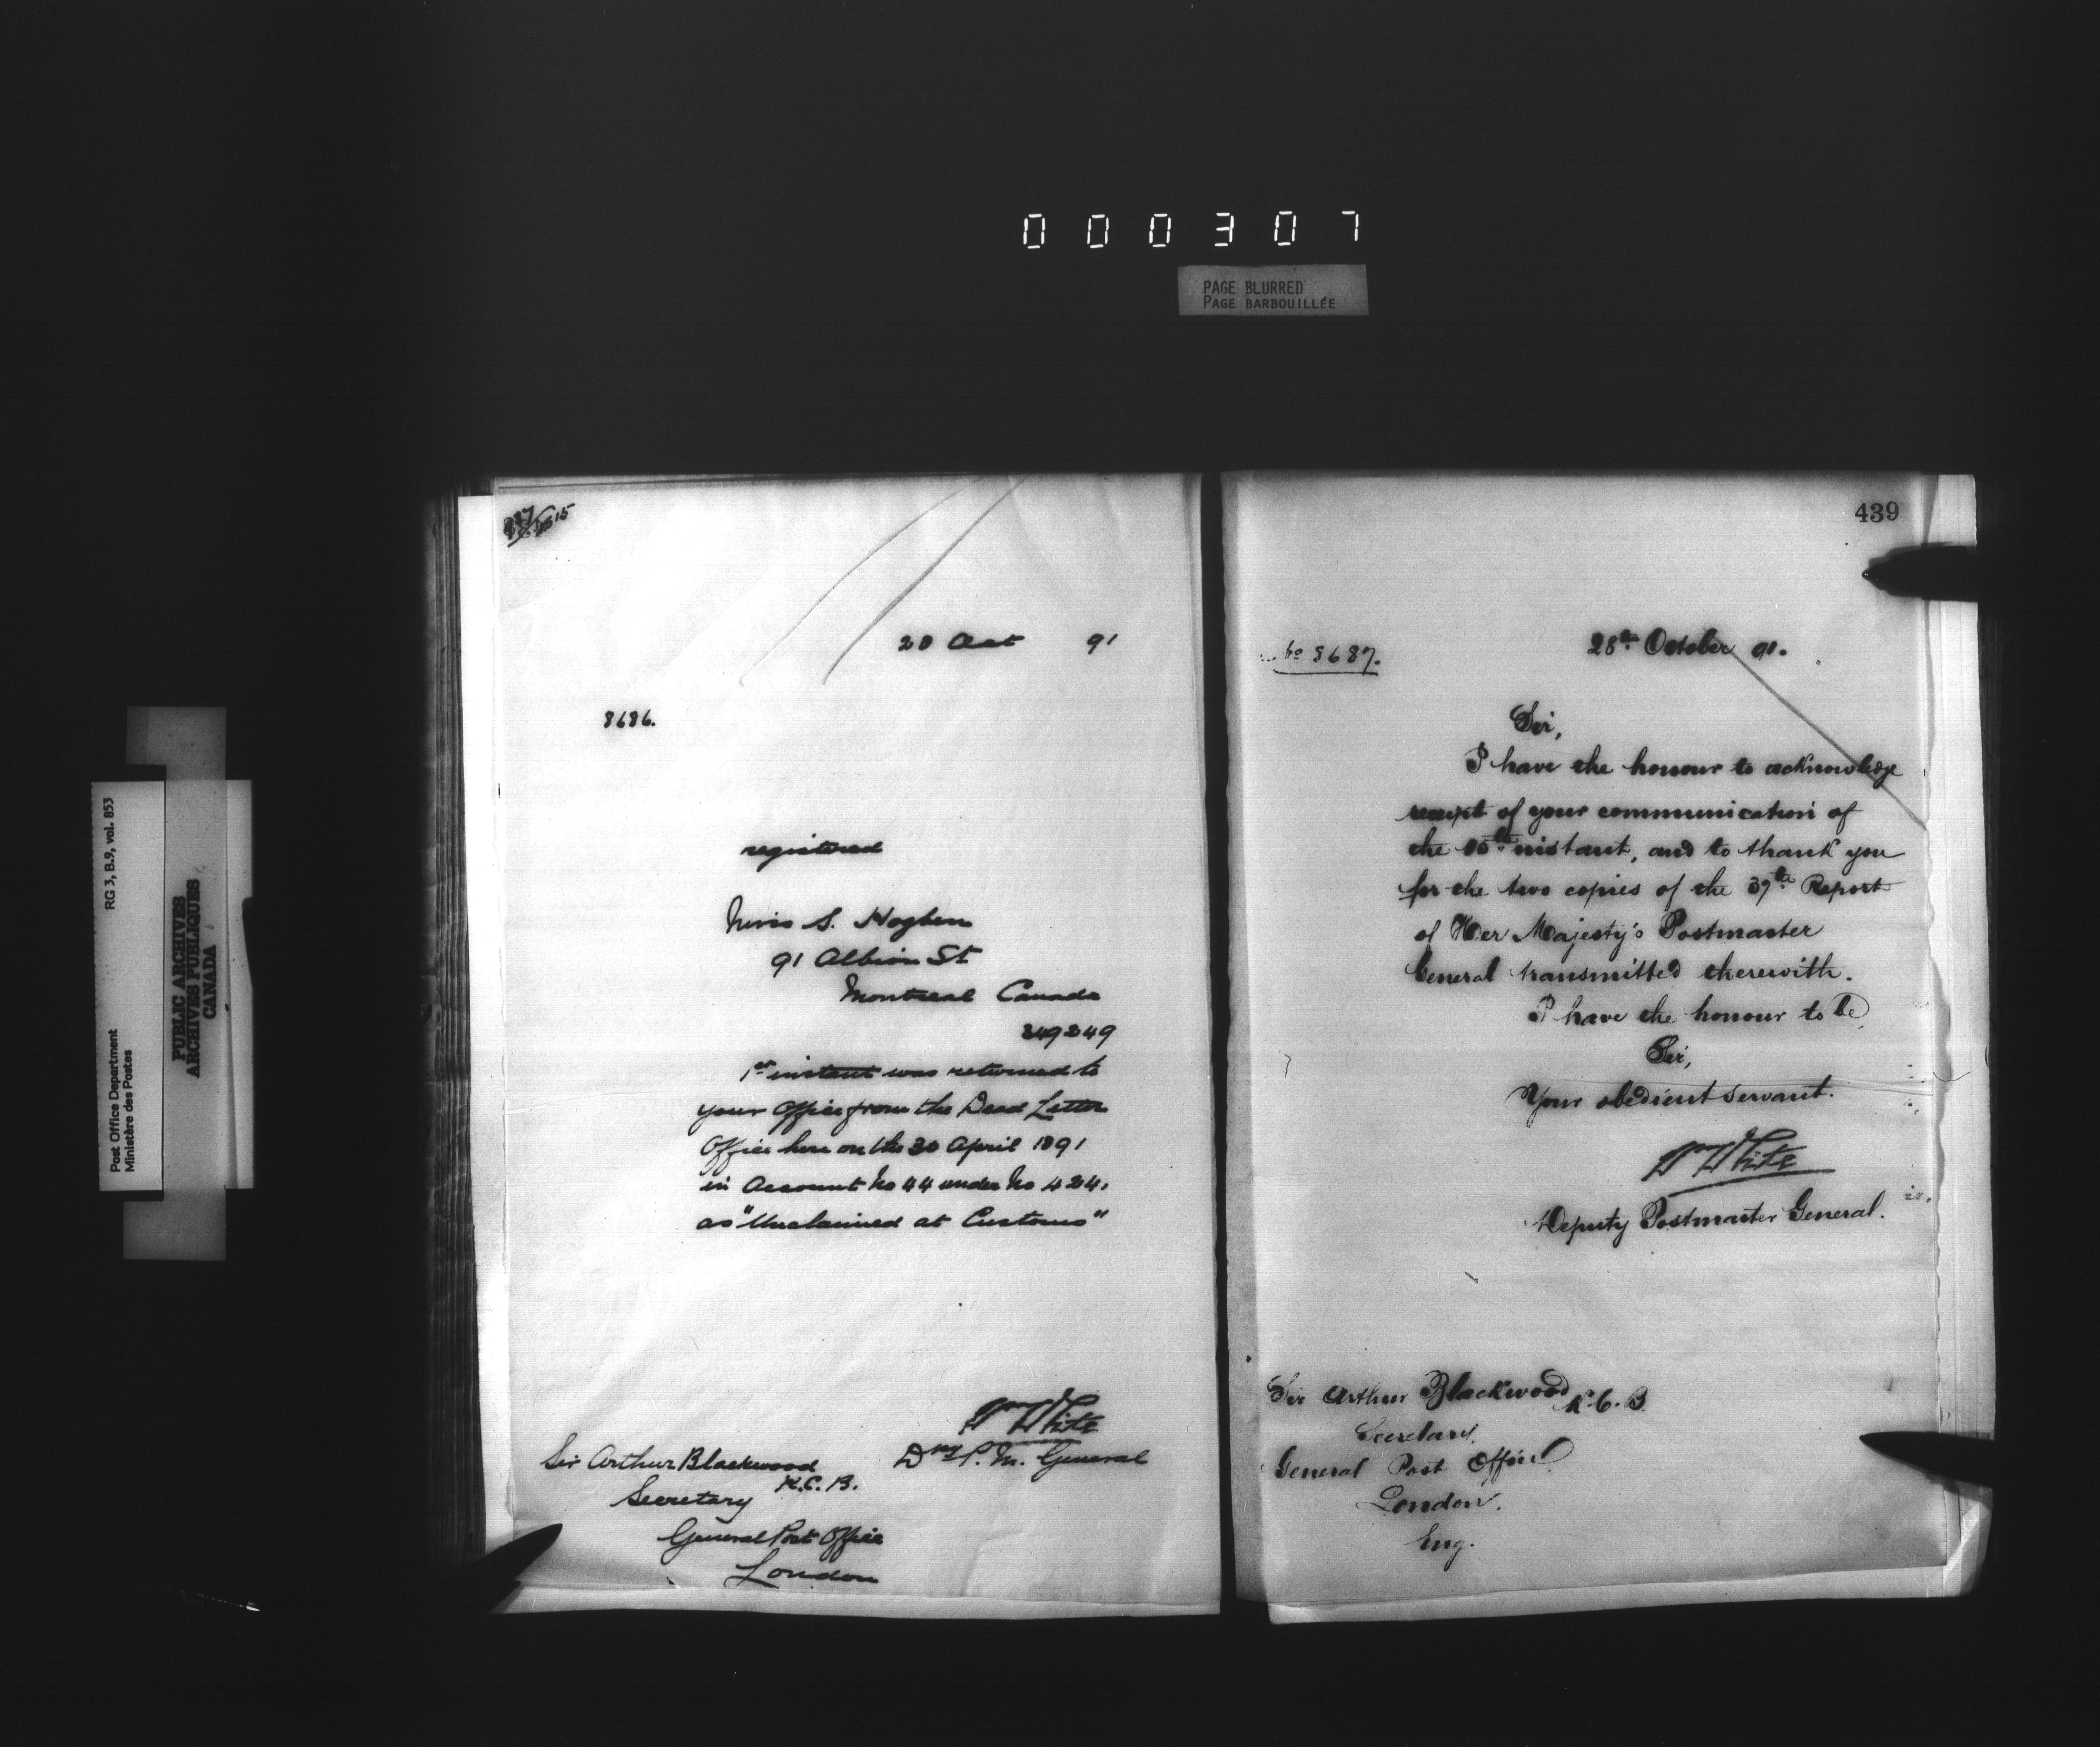 000307
PAGE BLURRED
PAGE BARBOUILLÉE
RG 3, B.9, vol. 853
Post Office Department
Ministère des Postes
PUBLIC ARCHIVES
ARCHIVES PUBLIQUES
CANADA
28 Oct 91
8686.
registered
S. Hogben
91 Albion St
Montreal Canada
349249
1st instant was returned to
your Office from the Dead Letter
Office here on the 30 April 1891
in Account No 44 under No 424,
as "Unclaimed at Customs"
Wm White
Dy P. M. General
Sir Arthur Blackwood
K.C.B.
Secretary
General Post Office
London
439
No 8687.
28th October 91.
Sir,
I have the honour to acknowledge
receipt of your communication of
the 15th instant, and to thank you
for the two copies of the 37th Report
of Her Majesty's Postmaster
General transmitted therewith.
I have the honour to be
Sir,
Your obedient servant.
Wm White
Deputy Postmaster General.
Sir Arthur Blackwood K.C.B.
Secretary,
General Post Office
London.
Eng.